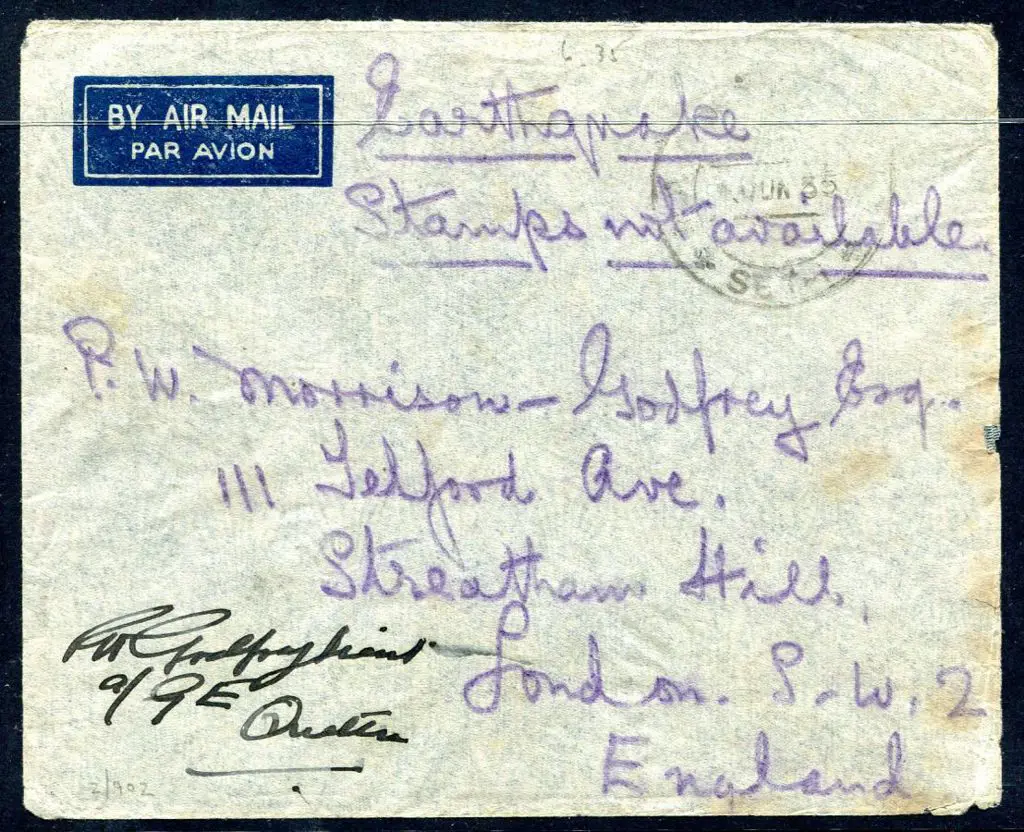 6.35
BY AIR MAIL
PAR AVION
Earthquake
Stamps not available.
JUN 35
P. W. Morrison-Godfrey Esq.
111 Telford Ave.
Streatham Hill,
London. S.W.2
England
a/ G E
Quetta
2/902